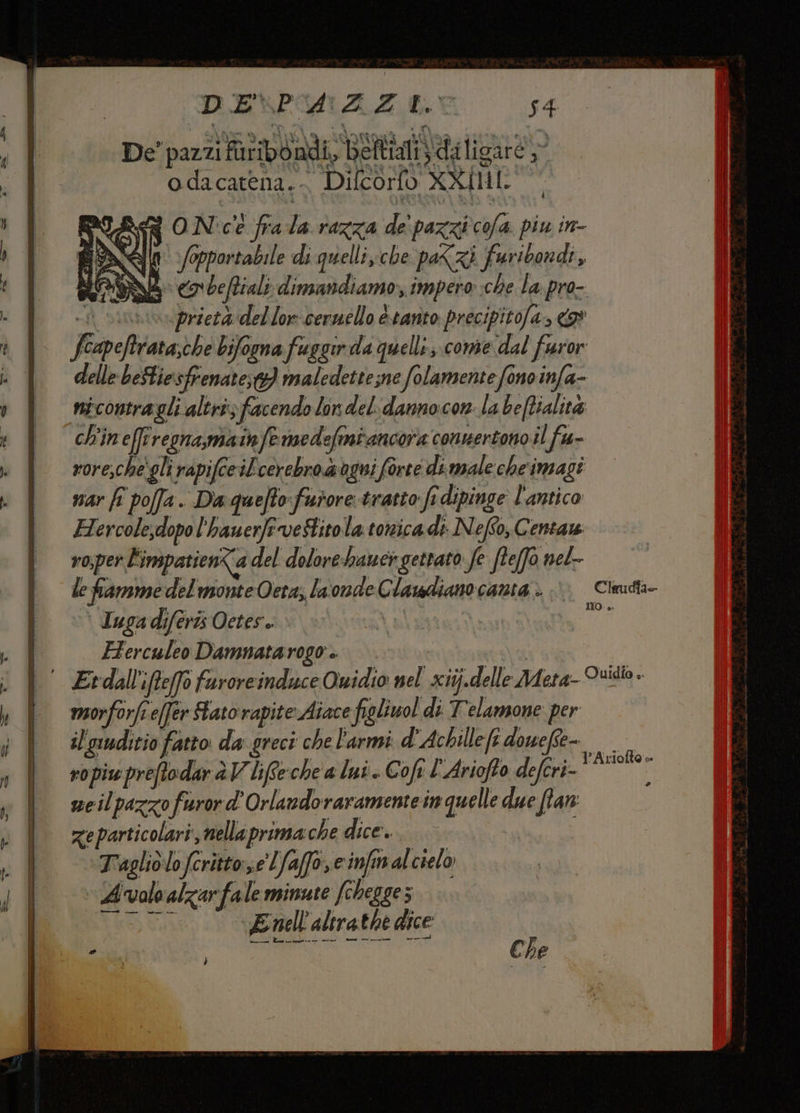 DE' PAZZI. 54
De' pazzi furibondi, beſtiali, da ligare,
o da catena. Diſcorſo XXIIII.
NON c'è fra la razza de' pazzi coſa piu in-
ſopportabile di quelli, che pazzi furibondi,
& beſtiali dimandiamo, impero che la pro-
prietà del lor ceruello è tanto precipitoſa, &
ſcapeſtrata, che biſogna fuggir da quelli, come dal furor
delle beſtie sfrenate, & maledette; ne ſolamente ſono inſa-
ni contra gli altri, facendo lor del danno con la beſtialità
ch'in eſſi regna, ma in ſe medeſmi ancora conuertono il fu-
rore, che gli rapiſce il cerebro à ogni ſorte di male che imagi
nar ſi poſſa. Da queſto furore tratto ſi dipinge l'antico
Hercole, dopo l'hauerſi veſtito la tonica di Neſſo, Centau
ro, per l'impatienza del dolore hauer gettato ſe ſteſſo nel-
le fiamme del monte Oeta, la onde Claudiano canta. Claudia-
no.
Iuga diſeris Oetes.
Herculeo Damnata rogo.
Et dall'iſteſſo furore induce Ouidio nel xiij. delle Meta- Ouidio.
morforſi eſſer ſtato rapite Aiace figliuol di Telamone per
il giuditio fatto da greci che l'armi d'Achille ſi doueſſe-
ro piu preſto dar à Vliſſe che a lui. Coſi l'Arioſto deſcri- l'Arioſto.
ue il pazzo furor d'Orlando raramente in quelle due ſtan
ze particolari, nella prima che dice.
Tagliò lo ſcritto, e'l ſaſſo, e inſin al cielo
A volo alzar fa le minute ſchegge;
E nell'altra the dice
Che